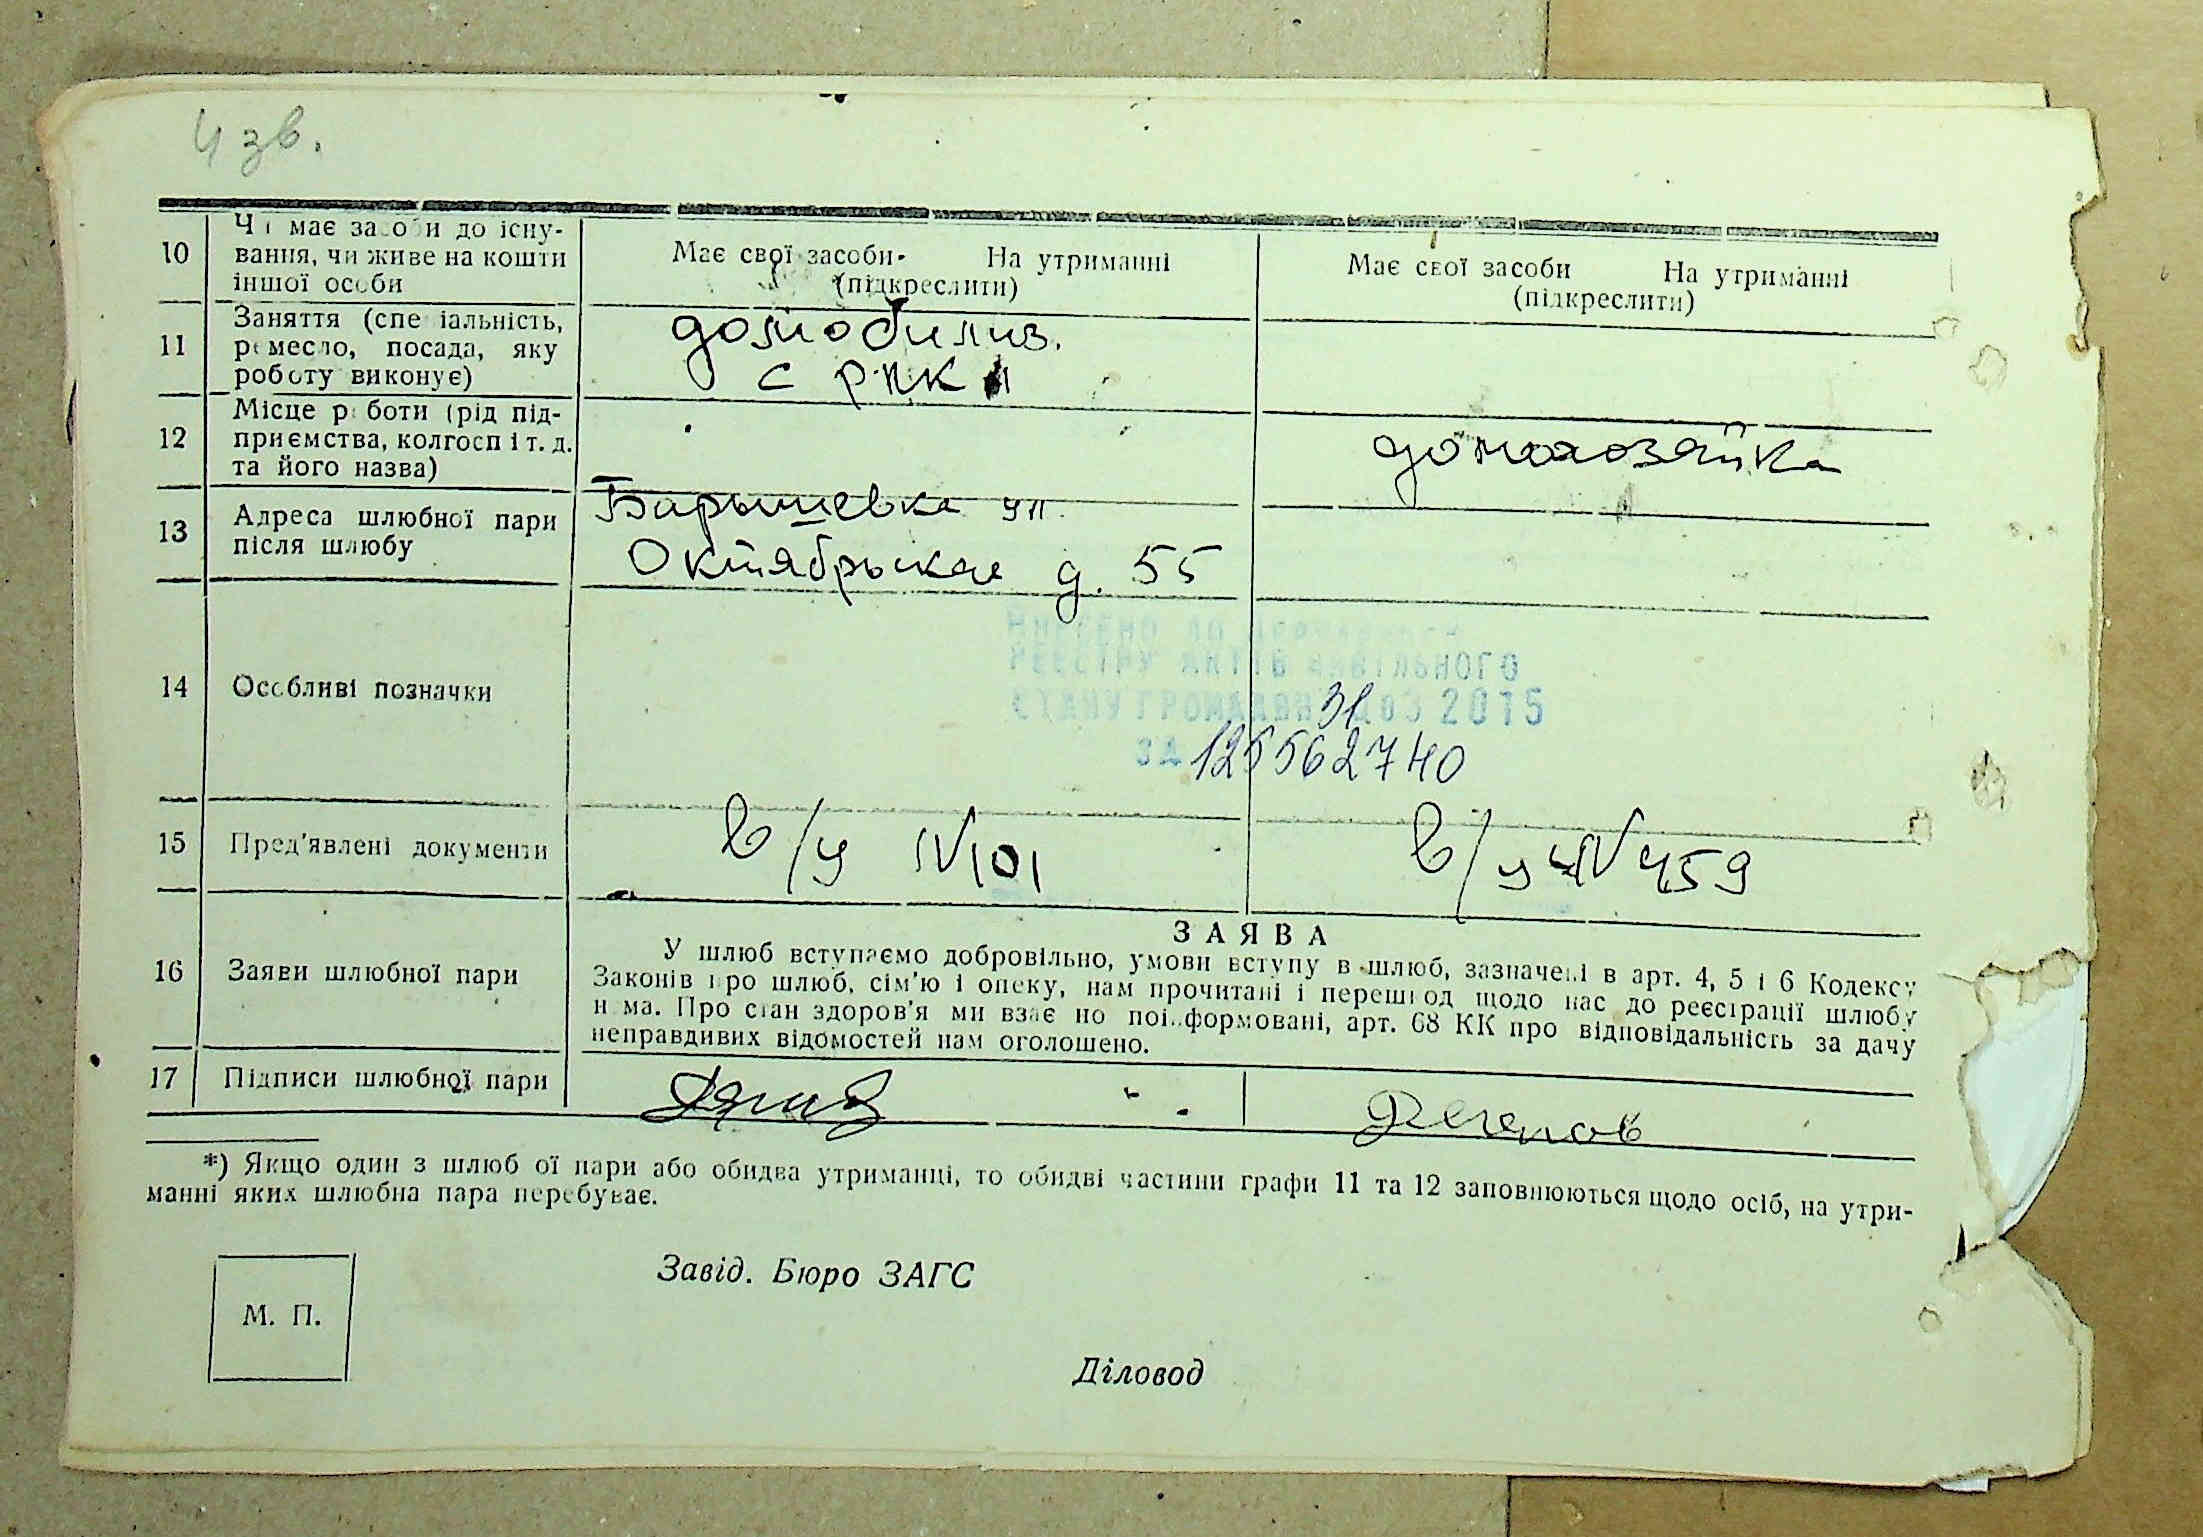 4 зв.
10
Чи має засоби до існу-
вання, чи живе на кошти
іншої особи
Має свої засоби. На утриманні
(підкреслити)
Має свої засоби На утриманні
(підкреслити)
11
Заняття (спеціальність,
ремесло, посада, яку
роботу виконує)
домобилиз.
с РПК
12
Місце роботи (рід під-
приємства, колгосп і т. д.
та його назва)
домохозяйка
13
Адреса шлюбної пари
після шлюбу
Барышевка ул.
Октябрьская д. 55
14
Особливі позначки
ВНЕСЕНО ДО ДЕРЖАВНОГО
РЕЄСТРУ АКТІВ ЦИВІЛЬНОГО
СТАНУ ГРОМАДЯН 31 03 2015
ЗА 125562740
15
Пред'явлені документи
в/у IV 101
в/у IV 459
16
Заяви шлюбної пари
ЗАЯВА
У шлюб вступаємо добровільно, умови вступу в шлюб, зазначені в арт. 4, 5 і 6 Кодексу
Законів про шлюб, сім'ю і опеку, нам прочитані і перешкод щодо нас до реєстрації шлюбу
нема. Про стан здоров'я ми взаємно поінформовані, арт. 68 КК про відповідальність за дачу
неправдивих відомостей нам оголошено.
17
Підписи шлюбної пари
*) Якщо один з шлюбної пари або обидва утриманці, то обидві частини графи 11 та 12 заповнюються щодо осіб, на утри-
манні яких шлюбна пара перебуває.
Завід. Бюро ЗАГС
М. П.
Діловод